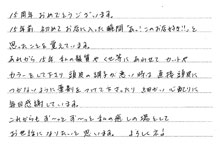 15周年おめでとうございます。
15年前 初めてお店に入った瞬間"あっ!このお店好き!!"と
思ったことを覚えています。
あれから15年 私の髪質やくせ等にあわせて カットや
カラーをして下さり 頭皮の調子が悪い時は 直接頭皮に
つかないように薬剤をつけて下さったり 細かい心配りに
毎日感謝しています。
これからもずーっとずーっと 私の癒しの場として
お世話になりたいと思います。 よろしくネ♪